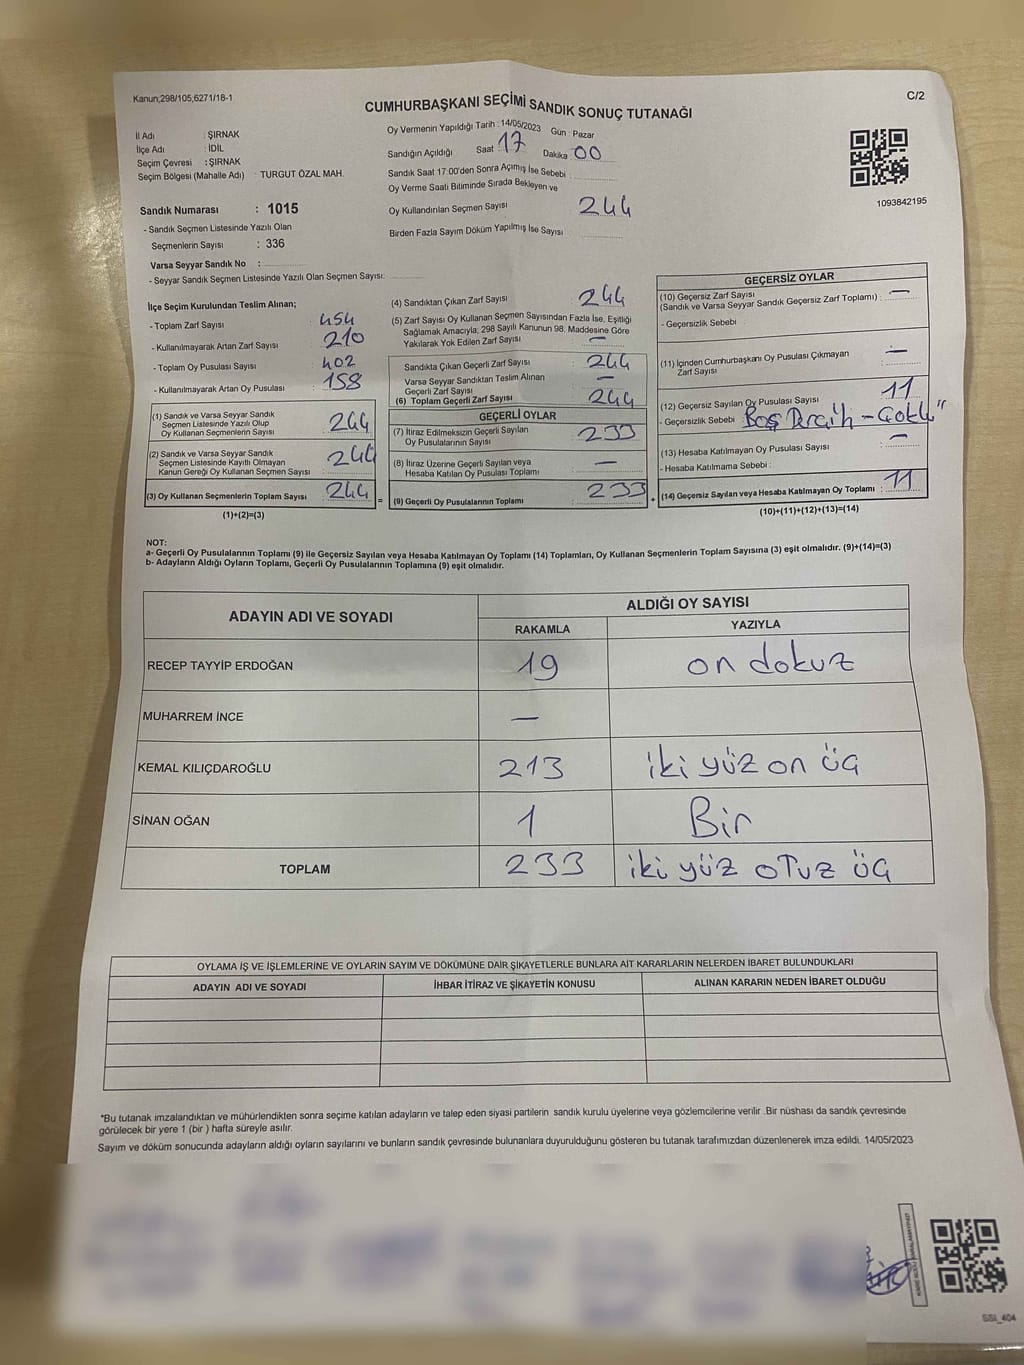 Kanun;298/105;6271/18-1
C/2
CUMHURBAŞKANI SEÇİMİ SANDIK SONUÇ TUTANAĞI
İl Adı : ŞIRNAK
İlçe Adı : İDİL
Seçim Çevresi : ŞIRNAK
Seçim Bölgesi (Mahalle Adı) : TURGUT ÖZAL MAH.
Sandık Numarası : 1015
- Sandık Seçmen Listesinde Yazılı Olan
Seçmenlerin Sayısı : 336
Varsa Seyyar Sandık No :
- Seyyar Sandık Seçmen Listesinde Yazılı Olan Seçmen Sayısı:
Oy Vermenin Yapıldığı Tarih : 14/05/2023 Gün : Pazar
Sandığın Açıldığı Saat 17 Dakika 00
Sandık Saat 17:00'den Sonra Açımış İse Sebebi :
Oy Verme Saati Bitiminde Sırada Bekleyen ve
Oy Kullandırılan Seçmen Sayısı 244
Birden Fazla Sayım Döküm Yapılmış İse Sayısı
1093842195
İlçe Seçim Kurulundan Teslim Alınan;
- Toplam Zarf Sayısı : 454
- Kullanılmayarak Artan Zarf Sayısı : 210
- Toplam Oy Pusulası Sayısı : 402
- Kullanılmayarak Artan Oy Pusulası : 158
(1) Sandık ve Varsa Seyyar Sandık
Seçmen Listesinde Yazılı Olup
Oy Kullanan Seçmenlerin Sayısı : 244
(2) Sandık ve Varsa Seyyar Sandık
Seçmen Listesinde Kayıtlı Olmayan
Kanun Gereği Oy Kullanan Seçmen Sayısı : 244
(3) Oy Kullanan Seçmenlerin Toplam Sayısı : 244
(1)+(2)=(3)
(4) Sandıktan Çıkan Zarf Sayısı 244
(5) Zarf Sayısı Oy Kullanan Seçmen Sayısından Fazla İse, Eşitliği
Sağlamak Amacıyla; 298 Sayılı Kanunun 98. Maddesine Göre
Yakılarak Yok Edilen Zarf Sayısı : —
Sandıkta Çıkan Geçerli Zarf Sayısı : 244
Varsa Seyyar Sandıktan Teslim Alınan
Geçerli Zarf Sayısı : —
(6) Toplam Geçerli Zarf Sayısı : 244
GEÇERLİ OYLAR
(7) İtiraz Edilmeksizin Geçerli Sayılan
Oy Pusulalarının Sayısı : 233
(8) İtiraz Üzerine Geçerli Sayılan veya
Hesaba Katılan Oy Pusulası Toplamı : —
= (9) Geçerli Oy Pusulalarının Toplamı : 233 +
GEÇERSİZ OYLAR
(10) Geçersiz Zarf Sayısı
(Sandık ve Varsa Seyyar Sandık Geçersiz Zarf Toplamı) : —
- Geçersizlik Sebebi
(11) İçinden Cumhurbaşkanı Oy Pusulası Çıkmayan
Zarf Sayısı : —
(12) Geçersiz Sayılan Oy Pusulası Sayısı : 11
- Geçersizlik Sebebi Boş Tercih -
(13) Hesaba Katılmayan Oy Pusulası Sayısı : —
- Hesaba Katılmama Sebebi :
(14) Geçersiz Sayılan veya Hesaba Katılmayan Oy Toplamı : 11
(10)+(11)+(12)+(13)=(14)
NOT:
a- Geçerli Oy Pusulalarının Toplamı (9) ile Geçersiz Sayılan veya Hesaba Katılmayan Oy Toplamı (14) Toplamları, Oy Kullanan Seçmenlerin Toplam Sayısına (3) eşit olmalıdır. (9)+(14)=(3)
b- Adayların Aldığı Oyların Toplamı, Geçerli Oy Pusulalarının Toplamına (9) eşit olmalıdır.
ADAYIN ADI VE SOYADI
ALDIĞI OY SAYISI
RAKAMLA YAZIYLA
RECEP TAYYİP ERDOĞAN 19 on dokuz
MUHARREM İNCE —
KEMAL KILIÇDAROĞLU 213 iki yüz on üç
SİNAN OĞAN 1 Bir
TOPLAM 233 iki yüz oTuz üç
OYLAMA İŞ VE İŞLEMLERİNE VE OYLARIN SAYIM VE DÖKÜMÜNE DAİR ŞİKAYETLERLE BUNLARA AİT KARARLARIN NELERDEN İBARET BULUNDUKLARI
ADAYIN ADI VE SOYADI İHBAR İTİRAZ VE ŞİKAYETİN KONUSU ALINAN KARARIN NEDEN İBARET OLDUĞU
*Bu tutanak imzalandıktan ve mühürlendikten sonra seçime katılan adayların ve talep eden siyasi partilerin sandık kurulu üyelerine veya gözlemcilerine verilir .Bir nüshası da sandık çevresinde
görülecek bir yere 1 (bir ) hafta süreyle asılır.
Sayım ve döküm sonucunda adayların aldığı oyların sayılarını ve bunların sandık çevresinde bulunanlara duyurulduğunu gösteren bu tutanak tarafımızdan düzenlenerek imza edildi. 14/05/2023
SSI_404